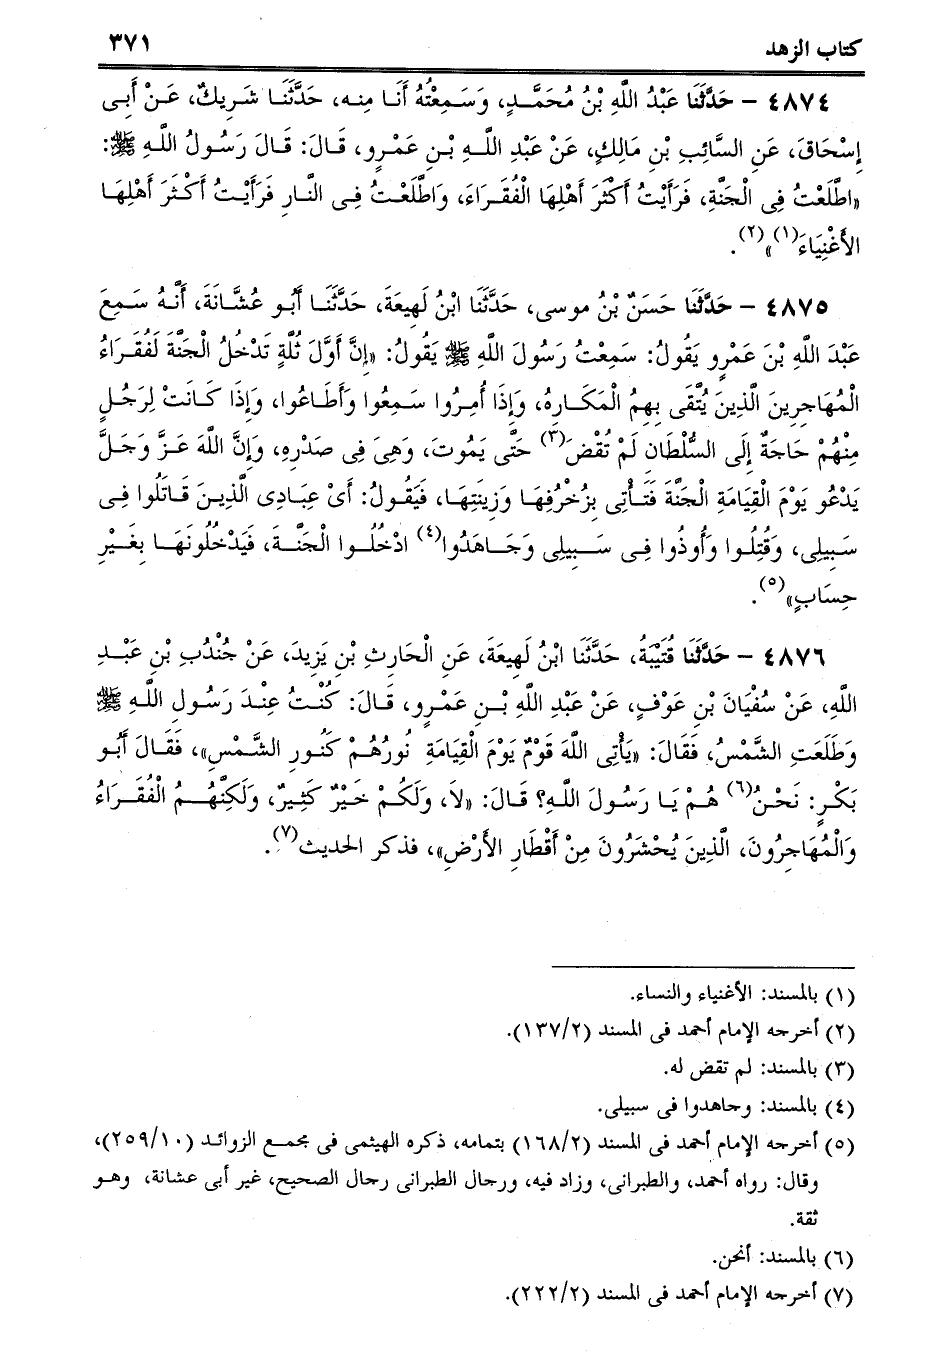 كتاب الزهد ٣٧١
٤٨٧٤ - حَدَّثَنَا عَبْدُ اللَّهِ بْنُ مُحَمَّدٍ، وَسَمِعْتُهُ أَنَا مِنه، حَدَّثَنَا شَرِيكٌ، عَنْ أَبِى
إِسْحَاقَ، عَنِ السَّائِبِ بْنِ مَالِكٍ، عَنْ عَبْدِ اللَّهِ بْنِ عَمْرٍو، قَالَ: قَالَ رَسُولُ اللَّهِ ﷺ:
«اطَّلَعْتُ فِى الْجَنَّةِ، فَرَأَيْتُ أَكْثَرَ أَهْلِهَا الْفُقَرَاءَ، وَاطَّلَعْتُ فِى النَّارِ فَرَأَيْتُ أَكْثَرَ أَهْلِهَا
الأَغْنِيَاءَ(١)»(٢).
٤٨٧٥ - حَدَّثَنَا حَسَنٌ بْنُ موسى، حَدَّثَنَا ابْنُ لَهِيعَةَ، حَدَّثَنَا أَبُو عُشَّانَةَ، أَنَّهُ سَمِعَ
عَبْدَ اللَّهِ بْنَ عَمْرٍو يَقُولُ: سَمِعْتُ رَسُولَ اللَّهِ ﷺ يَقُولُ: «إِنَّ أَوَّلَ ثُلَّةٍ تَدْخُلُ الْجَنَّةَ لَفُقَرَاءُ
الْمُهَاجِرِينَ الَّذِينَ يُتَّقَى بِهِمُ الْمَكَارِهُ، وَإِذَا أُمِرُوا سَمِعُوا وَأَطَاعُوا، وَإِذَا كَانَتْ لِرَجُلٍ
مِنْهُمْ حَاجَةٌ إِلَى السُّلْطَانِ لَمْ تُقْضَ(٣) حَتَّى يَمُوتَ، وَهِىَ فِى صَدْرِهِ، وَإِنَّ اللَّهَ عَزَّ وَجَلَّ
يَدْعُو يَوْمَ الْقِيَامَةِ الْجَنَّةَ فَتَأْتِى بِزُخْرُفِهَا وَزِينَتِهَا، فَيَقُولُ: أَىْ عِبَادِى الَّذِينَ قَاتَلُوا فِى
سَبِيلِى، وَقُتِلُوا وَأُوذُوا فِى سَبِيلِى وَجَاهَدُوا(٤) ادْخُلُوا الْجَنَّةَ، فَيَدْخُلُونَهَا بِغَيْرِ
حِسَابٍ»(٥).
٤٨٧٦ - حَدَّثَنَا قُتَيْبَةُ، حَدَّثَنَا ابْنُ لَهِيعَةَ، عَنِ الْحَارِثِ بْنِ يَزِيدَ، عَنْ جُنْدُبِ بْنِ عَبْدِ
اللَّهِ، عَنْ سُفْيَانَ بْنِ عَوْفٍ، عَنْ عَبْدِ اللَّهِ بْنِ عَمْرٍو، قَالَ: كُنْتُ عِنْدَ رَسُولِ اللَّهِ ﷺ
وَطَلَعَتِ الشَّمْسُ، فَقَالَ: «يَأْتِى اللَّهَ قَوْمٌ يَوْمَ الْقِيَامَةِ نُورُهُمْ كَنُورِ الشَّمْسِ»، فَقَالَ أَبُو
بَكْرٍ: نَحْنُ(٦) هُمْ يَا رَسُولَ اللَّهِ؟ قَالَ: «لا، وَلَكُمْ خَيْرٌ كَثِيرٌ، وَلَكِنَّهُمُ الْفُقَرَاءُ
وَالْمُهَاجِرُونَ، الَّذِينَ يُحْشَرُونَ مِنْ أَقْطَارِ الأَرْضِ»، فذكر الحديث(٧).
(١) بالمسند: الأغنياء والنساء.
(٢) أخرجه الإمام أحمد فى المسند (١٣٧/٢).
(٣) بالمسند: لم تقض له.
(٤) بالمسند: وجاهدوا فى سبيلى.
(٥) أخرجه الإمام أحمد فى المسند (١٦٨/٢) بتمامه، ذكره الهيثمى فى مجمع الزوائد (٢٥٩/١٠)،
وقال: رواه أحمد، والطبرانى، وزاد فيه، ورجال الطبرانى رجال الصحيح، غير أبى عشانة، وهو
ثقة.
(٦) بالمسند: أنحن.
(٧) أخرجه الإمام أحمد فى المسند (٢٢٢/٢).